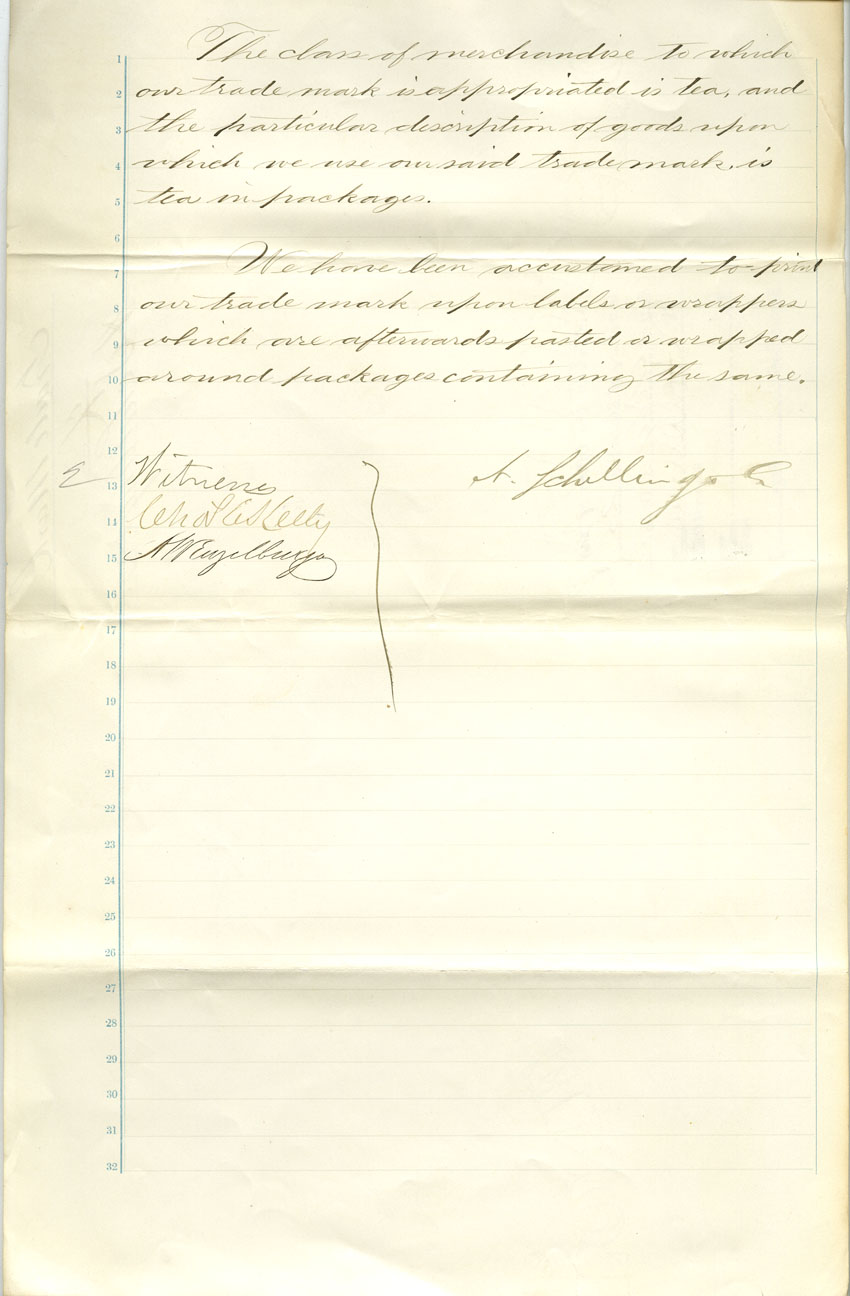 1 The class of merchandise to which
2 our trade mark is appropriated is tea, and
3 the particular description of goods upon
4 which we use our said trade mark, is
5 tea in packages.
6
7 We have been accustomed to print
8 our trade mark upon labels or wrappers
9 which are afterwards pasted or wrapped
10 around packages containing the same.
11
12
13 Witness A. Schilling & Co
14 Chas
15
16
17
18
19
20
21
22
23
24
25
26
27
28
29
30
31
32